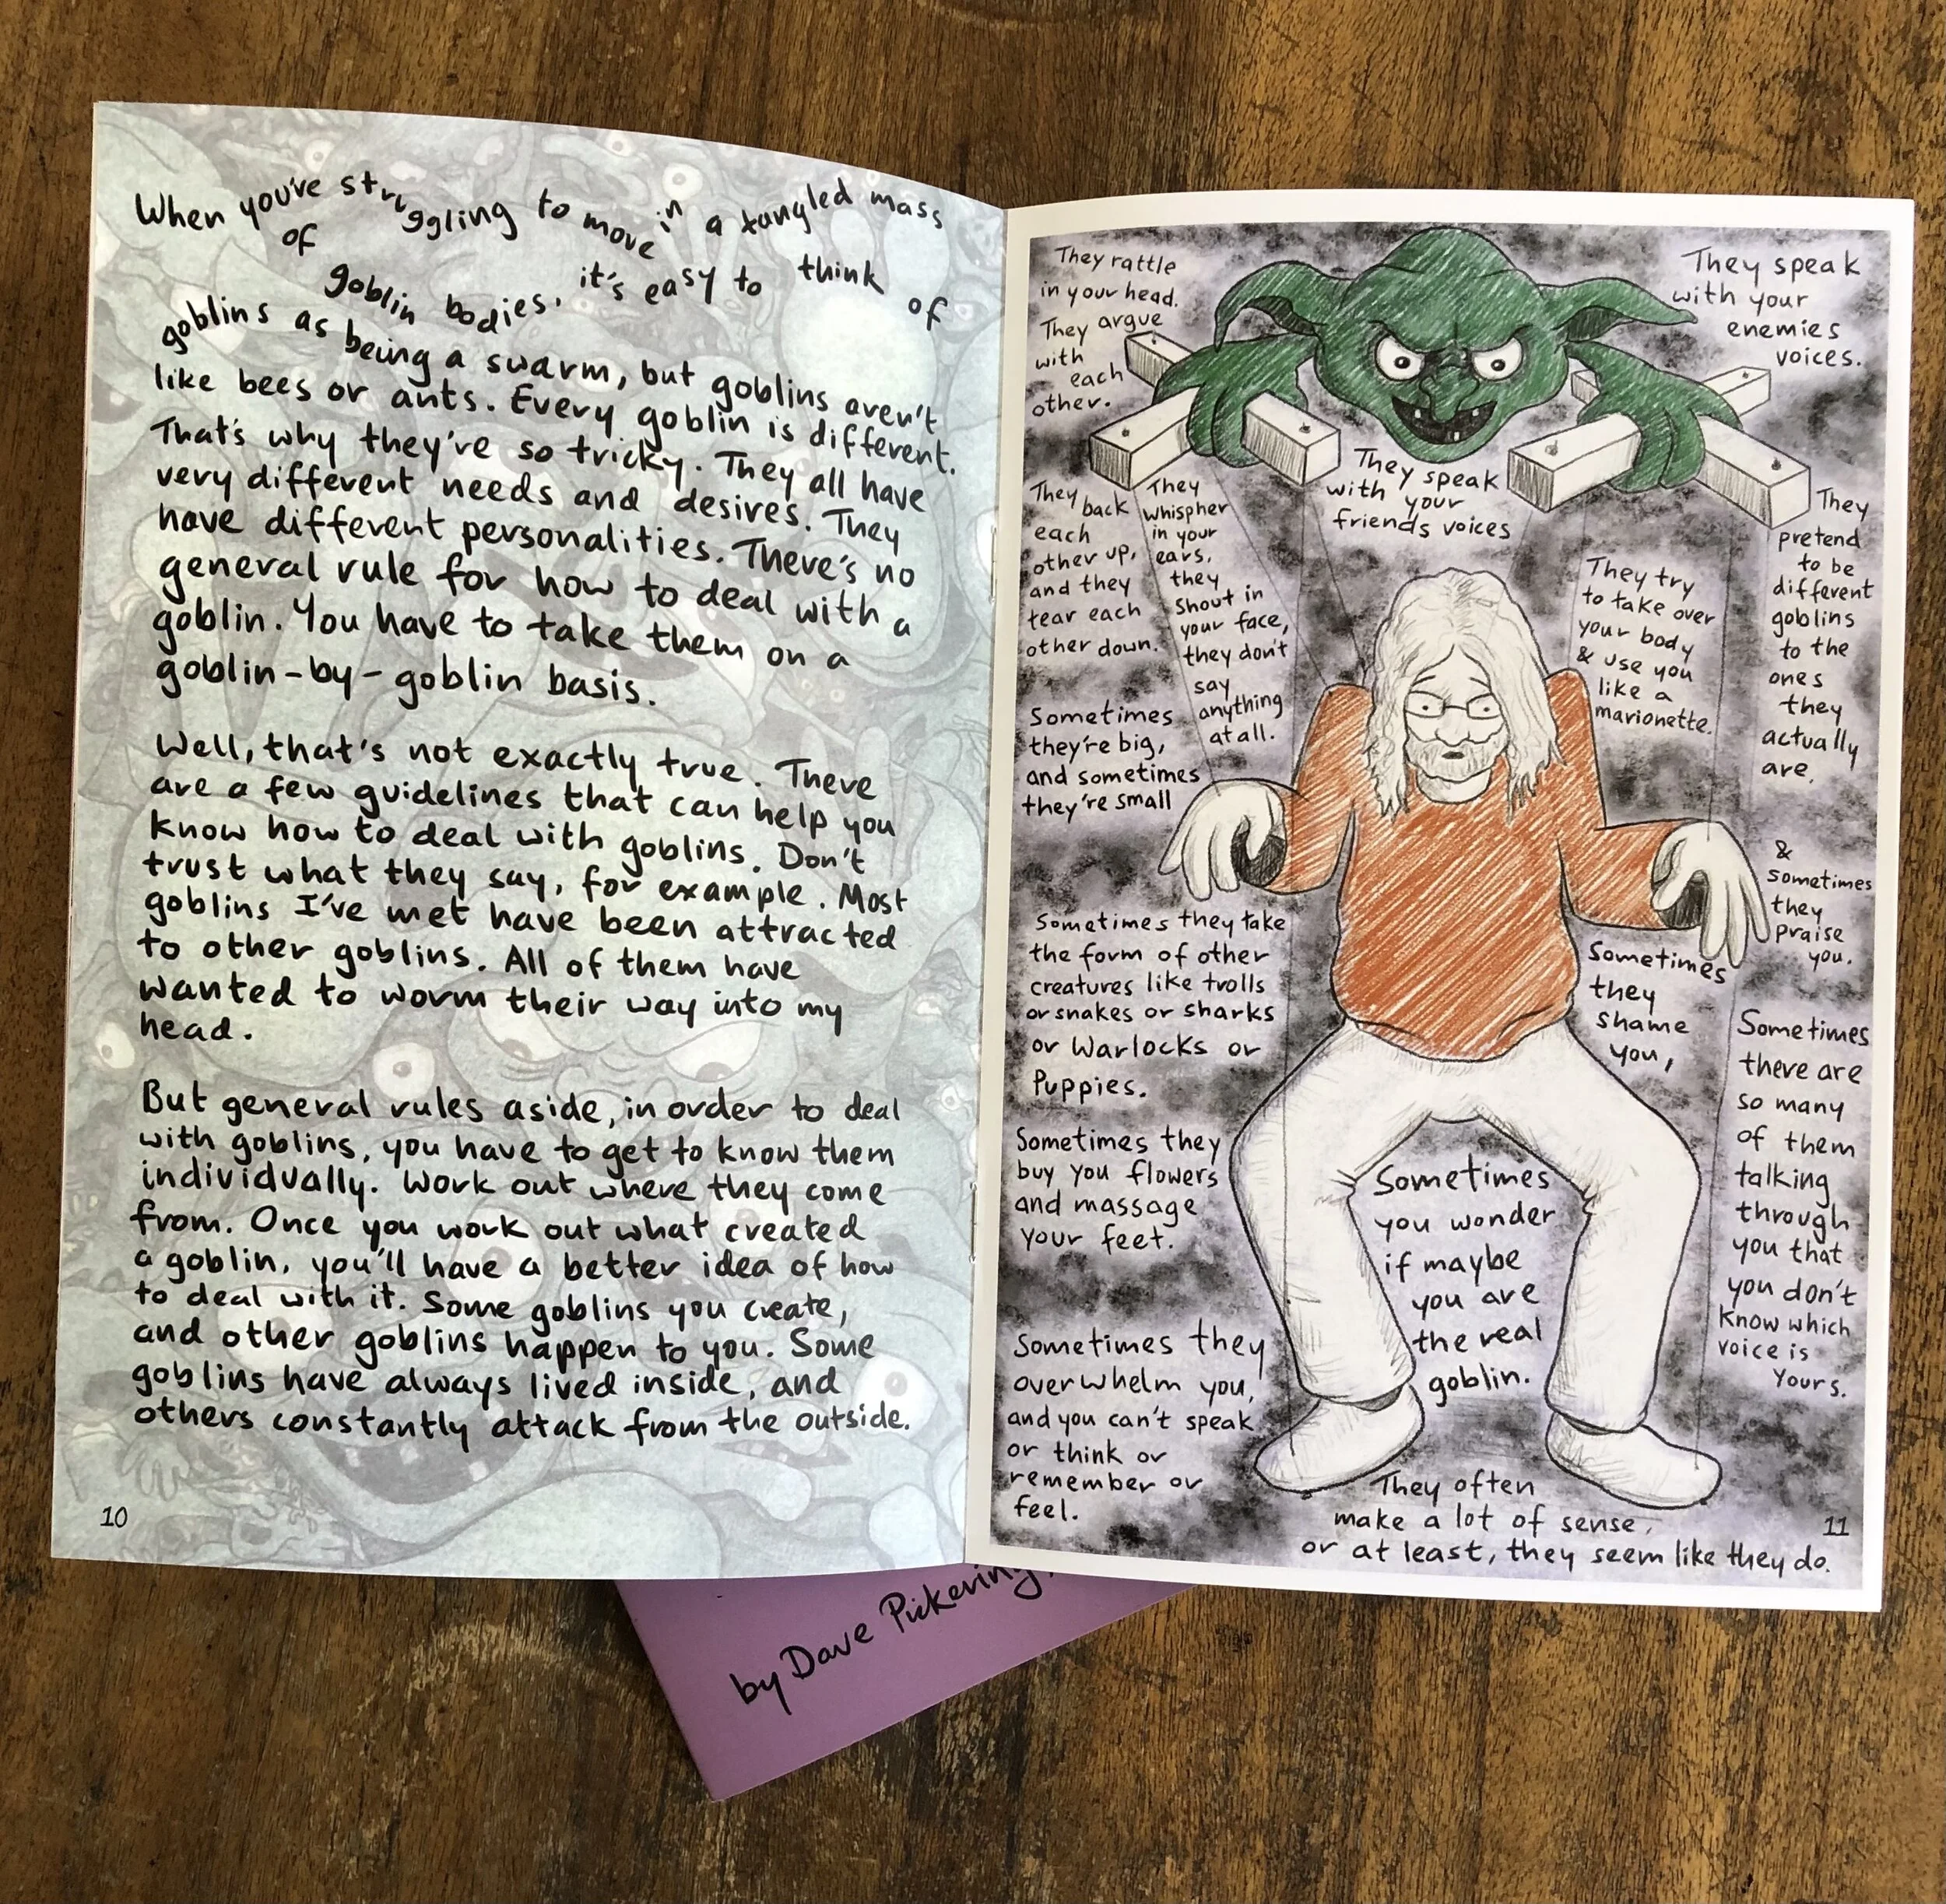 When you've struggling to move in a tangled mass
of
goblin bodies, it's easy to think of
goblins as being a swarm, but goblins aren't
like bees or ants. Every goblin is different.
That's why they're so tricky. They all have
very different needs and desires. They
have different personalities. There's no
general rule for how to deal with a
goblin. You have to take them on a
goblin-by-goblin basis.
Well, that's not exactly true. There
are a few guidelines that can help you
know how to deal with goblins. Don't
trust what they say, for example. Most
goblins I've met have been attracted
to other goblins. All of them have
wanted to worm their way into my
head.
But general rules aside, in order to deal
with goblins, you have to get to know them
individually. Work out where they come
from. Once you work out what created
a goblin, you'll have a better idea of how
to deal with it. Some goblins you create,
and other goblins happen to you. Some
goblins have always lived inside, and
others constantly attack from the outside.
10
They rattle
in your head.
They argue
with
each
other.
They speak
with your
enemies
voices.
They back
each
other up,
and they
tear each
other down.
They
whispher
in your
ears,
they
shout in
your face,
they don't
say
anything
at all.
They speak
with your
friends voices
They try
to take over
your body
& use you
like a
marionette.
They
pretend
to be
different
goblins
to the
ones
they
actually
are.
Sometimes
they're big,
and sometimes
they're small
Sometimes they take
the form of other
creatures like trolls
or snakes or sharks
or Warlocks or
Puppies.
Sometimes
they
shame
you,
&
sometimes
they
praise
you.
Sometimes they
buy you flowers
and massage
your feet.
Sometimes
you wonder
if maybe
you are
the real
goblin.
Sometimes
there are
so many
of them
talking
through
you that
you don't
know which
voice is
yours.
Sometimes they
overwhelm you,
and you can't speak
or think or
remember or
feel.
They often
make a lot of sense,
or at least, they seem like they do.
11
by Dave Pickering